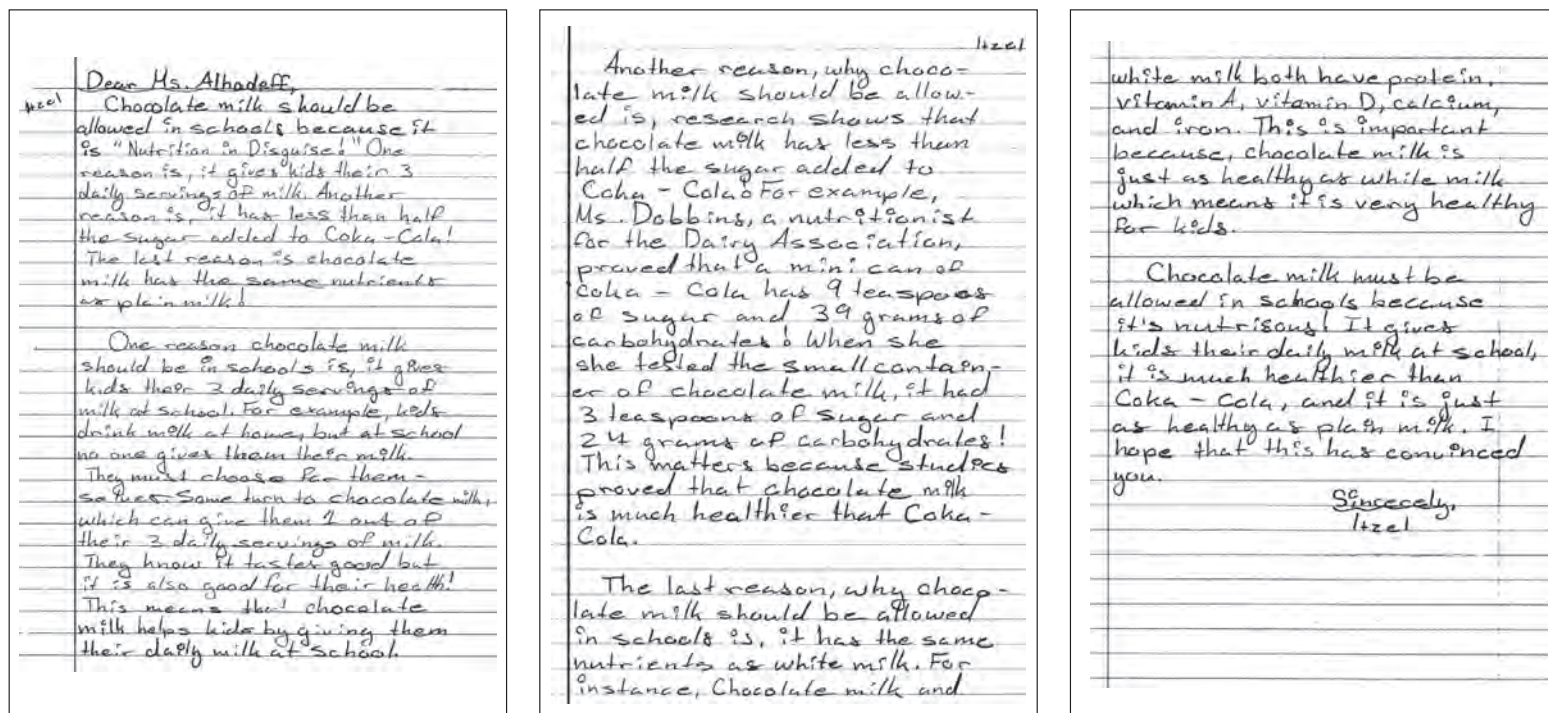 Dear Ms. Alhadeff,
Itzel
Chocolate milk should be
allowed in schools because it
is "Nutrition in Disguise!" One
reason is, it gives kids their 3
daily servings of milk. Another
reason is, it has less than half
the sugar added to Coka-Cola!
The last reason is chocolate
milk has the same nutrients
as plain milk!
One reason chocolate milk
should be in schools is, it gives
kids their 3 daily servings of
milk at school. For example, kids
drink milk at home, but at school
no one gives them their milk.
They must choose for them-
selves. Some turn to chocolate milk,
which can give them 1 out of
their 3 daily servings of milk.
They know it tastes good but
it is also good for their health!
This means that chocolate
milk helps kids by giving them
their daily milk at school.
Itzel
Another reason, why choco-
late milk should be allow-
ed is, research shows that
chocolate milk has less than
half the sugar added to
Coka-Cola! For example,
Ms. Dobbins, a nutritionist
for the Dairy Association,
proved that a mini can of
Coka-Cola has 9 teaspoos
of sugar and 39 grams of
carbohydrates! When she
she tested the small contain-
er of chocolate milk, it had
3 teaspoons of sugar and
24 grams of carbohydrates!
This matters because studies
proved that chocolate milk
is much healthier that Coka-
Cola.
The last reason, why choco-
late milk should be allowed
in schools is, it has the same
nutrients as white milk. For
instance, Chocolate milk and
white milk both have protein,
vitamin A, vitamin D, calcium,
and iron. This is important
because, chocolate milk is
just as healthy as while milk
which means it is very healthy
for kids.
Chocolate milk must be
allowed in schools because
it's nutrisous! It gives
kids their daily milk at school,
it is much healthier than
Coka-Cola, and it is just
as healthy as plain milk. I
hope that this has convinced
you.
Sincecely,
Itzel